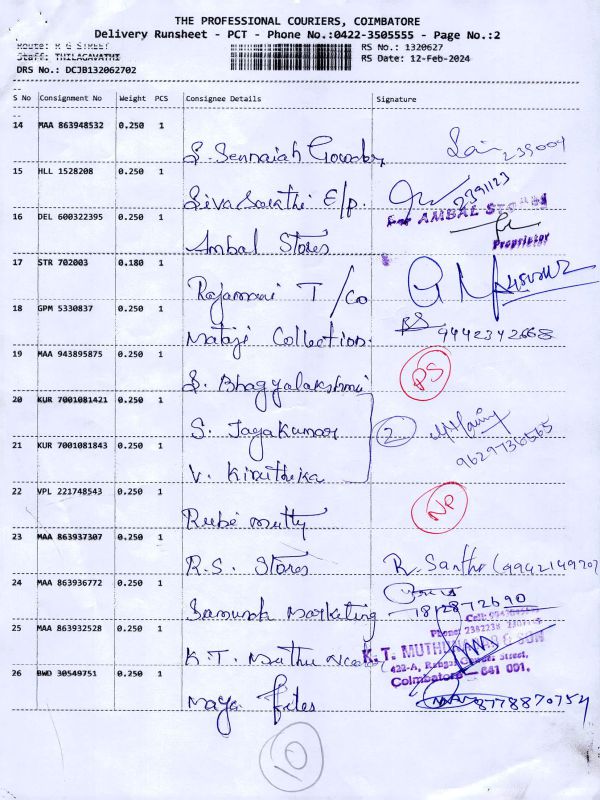 THE PROFESSIONAL COURIERS, COIMBATORE
Delivery Runsheet - PCT - Phone No.:0422-3505555 - Page No.:2
Route: R G STREET
RS No.: 1320627
Staff: THILAGAVATHI
RS Date: 12-Feb-2024
DRS No.: DCJB132062702
S No Consignment No Weight PCS Consignee Details Signature
14 MAA 863948532 0.250 1
S. Sennaiah Gowder 239004
15 HLL 1528208 0.250 1
Siva Sarathi E/p. 2391123
16 DEL 600322395 0.250 1 For AMBAL STORES
Ambal Stores Proprietor
17 STR 702003 0.180 1
Rajamani T/Co
18 GPM 5330837 0.250 1
Mataji Collection. 9442342668
19 MAA 943895875 0.250 1
S. Bhagyalakshmi PS
20 KUR 7001081421 0.250 1
S. Jayakumar 2
21 KUR 7001081843 0.250 1
V. Kiruthika 9629736565
22 VPL 221748543 0.250 1
Rubé Mutty NP
23 MAA 863937307 0.250 1
R.S. Stores R. Santho (9942149207
24 MAA 863936772 0.250 1
Marketing 7812872690
25 MAA 863932528 0.250 1
K.T. Muthu
K. T. MUTHU & SON
422-A, Street,
Coimbatore - 641 001.
26 BWD 30549751 0.250 1
Maya 8778870754
10